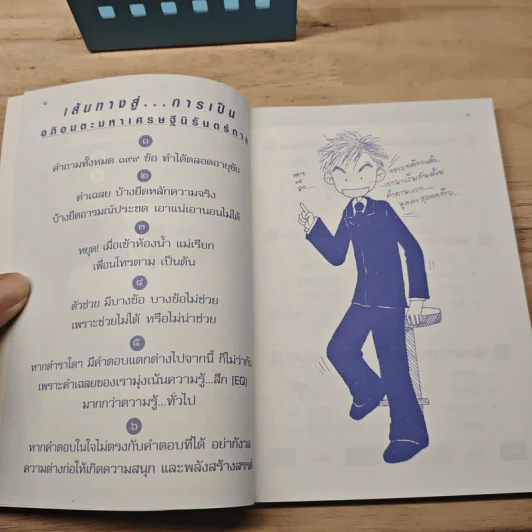 เส้นทางสู่...การเป็น
อภิอมตะมหาเศรษฐีนิรันดร์กาล
๑
คำถามทั้งหมด ๑๙๙ ข้อ ทำได้ตลอดอายุขัย
๒
คำเฉลย บ้างยึดหลักความจริง
บ้างยึดอารมณ์ประชด เอาแน่เอานอนไม่ได้
๓
หยุด! เมื่อเข้าห้องน้ำ แม่เรียก
เพื่อนโทรตาม เป็นต้น
๔
ตัวช่วย มีบางข้อ บางข้อไม่ช่วย
เพราะช่วยไม่ได้ หรือไม่น่าช่วย
๕
หากตำราใดๆ มีคำตอบแตกต่างไปจากนี้ ก็ไม่ว่ากัน
เพราะคำเฉลยของเรามุ่งเน้นความรู้...สึก (EQ)
มากกว่าความรู้...ทั่วไป
๖
หากคำตอบในใจไม่ตรงกับคำตอบที่ได้ อย่ากังวล
ความต่างก่อให้เกิดความสนุก และพลังสร้างสรรค์
เรามาเริ่มกันด้วย
คำถามแรก...